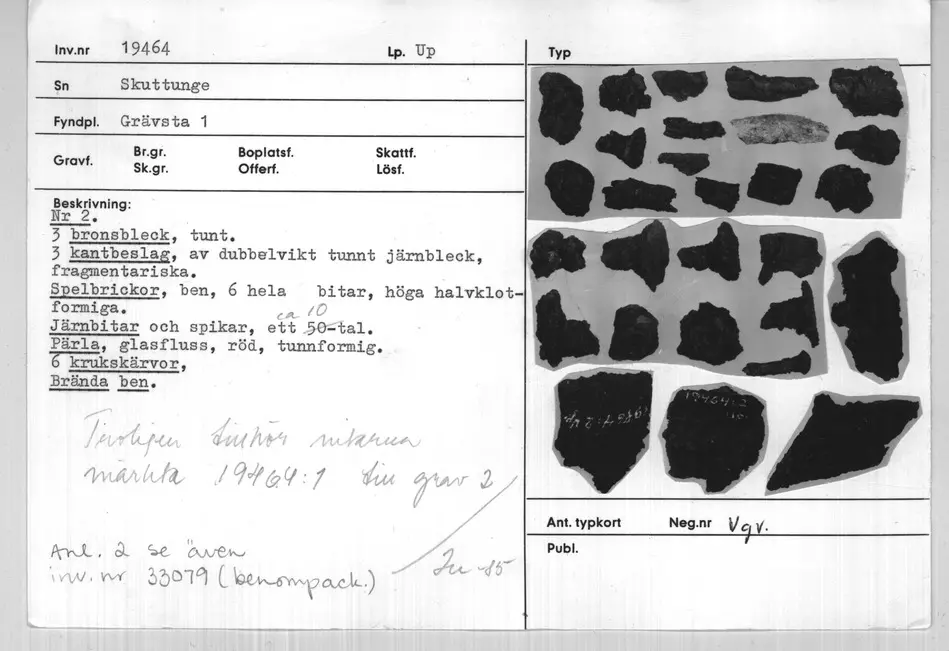 Inv.nr 19464 Lp. Up
Sn Skuttunge
Fyndpl. Grävsta 1
Gravf. Br.gr. Boplatsf. Skattf.
Sk.gr. Offerf. Lösf.
Beskrivning:
Nr 2.
3 bronsbleck, tunt.
3 kantbeslag, av dubbelvikt tunnt järnbleck,
fragmentariska.
Spelbrickor, ben, 6 hela bitar, höga halvklot-
formiga.
ca 10
Järnbitar och spikar, ett 50-tal.
Pärla, glasfluss, röd, tunnformig.
6 krukskärvor,
Brända ben.
Troligen tillhör nitarna
märkta 19464:1 till grav 2
Anl. 2 se även
inv. nr 33079 (benompack.)
-85
Typ
Ant. typkort Neg.nr Vgv.
Publ.